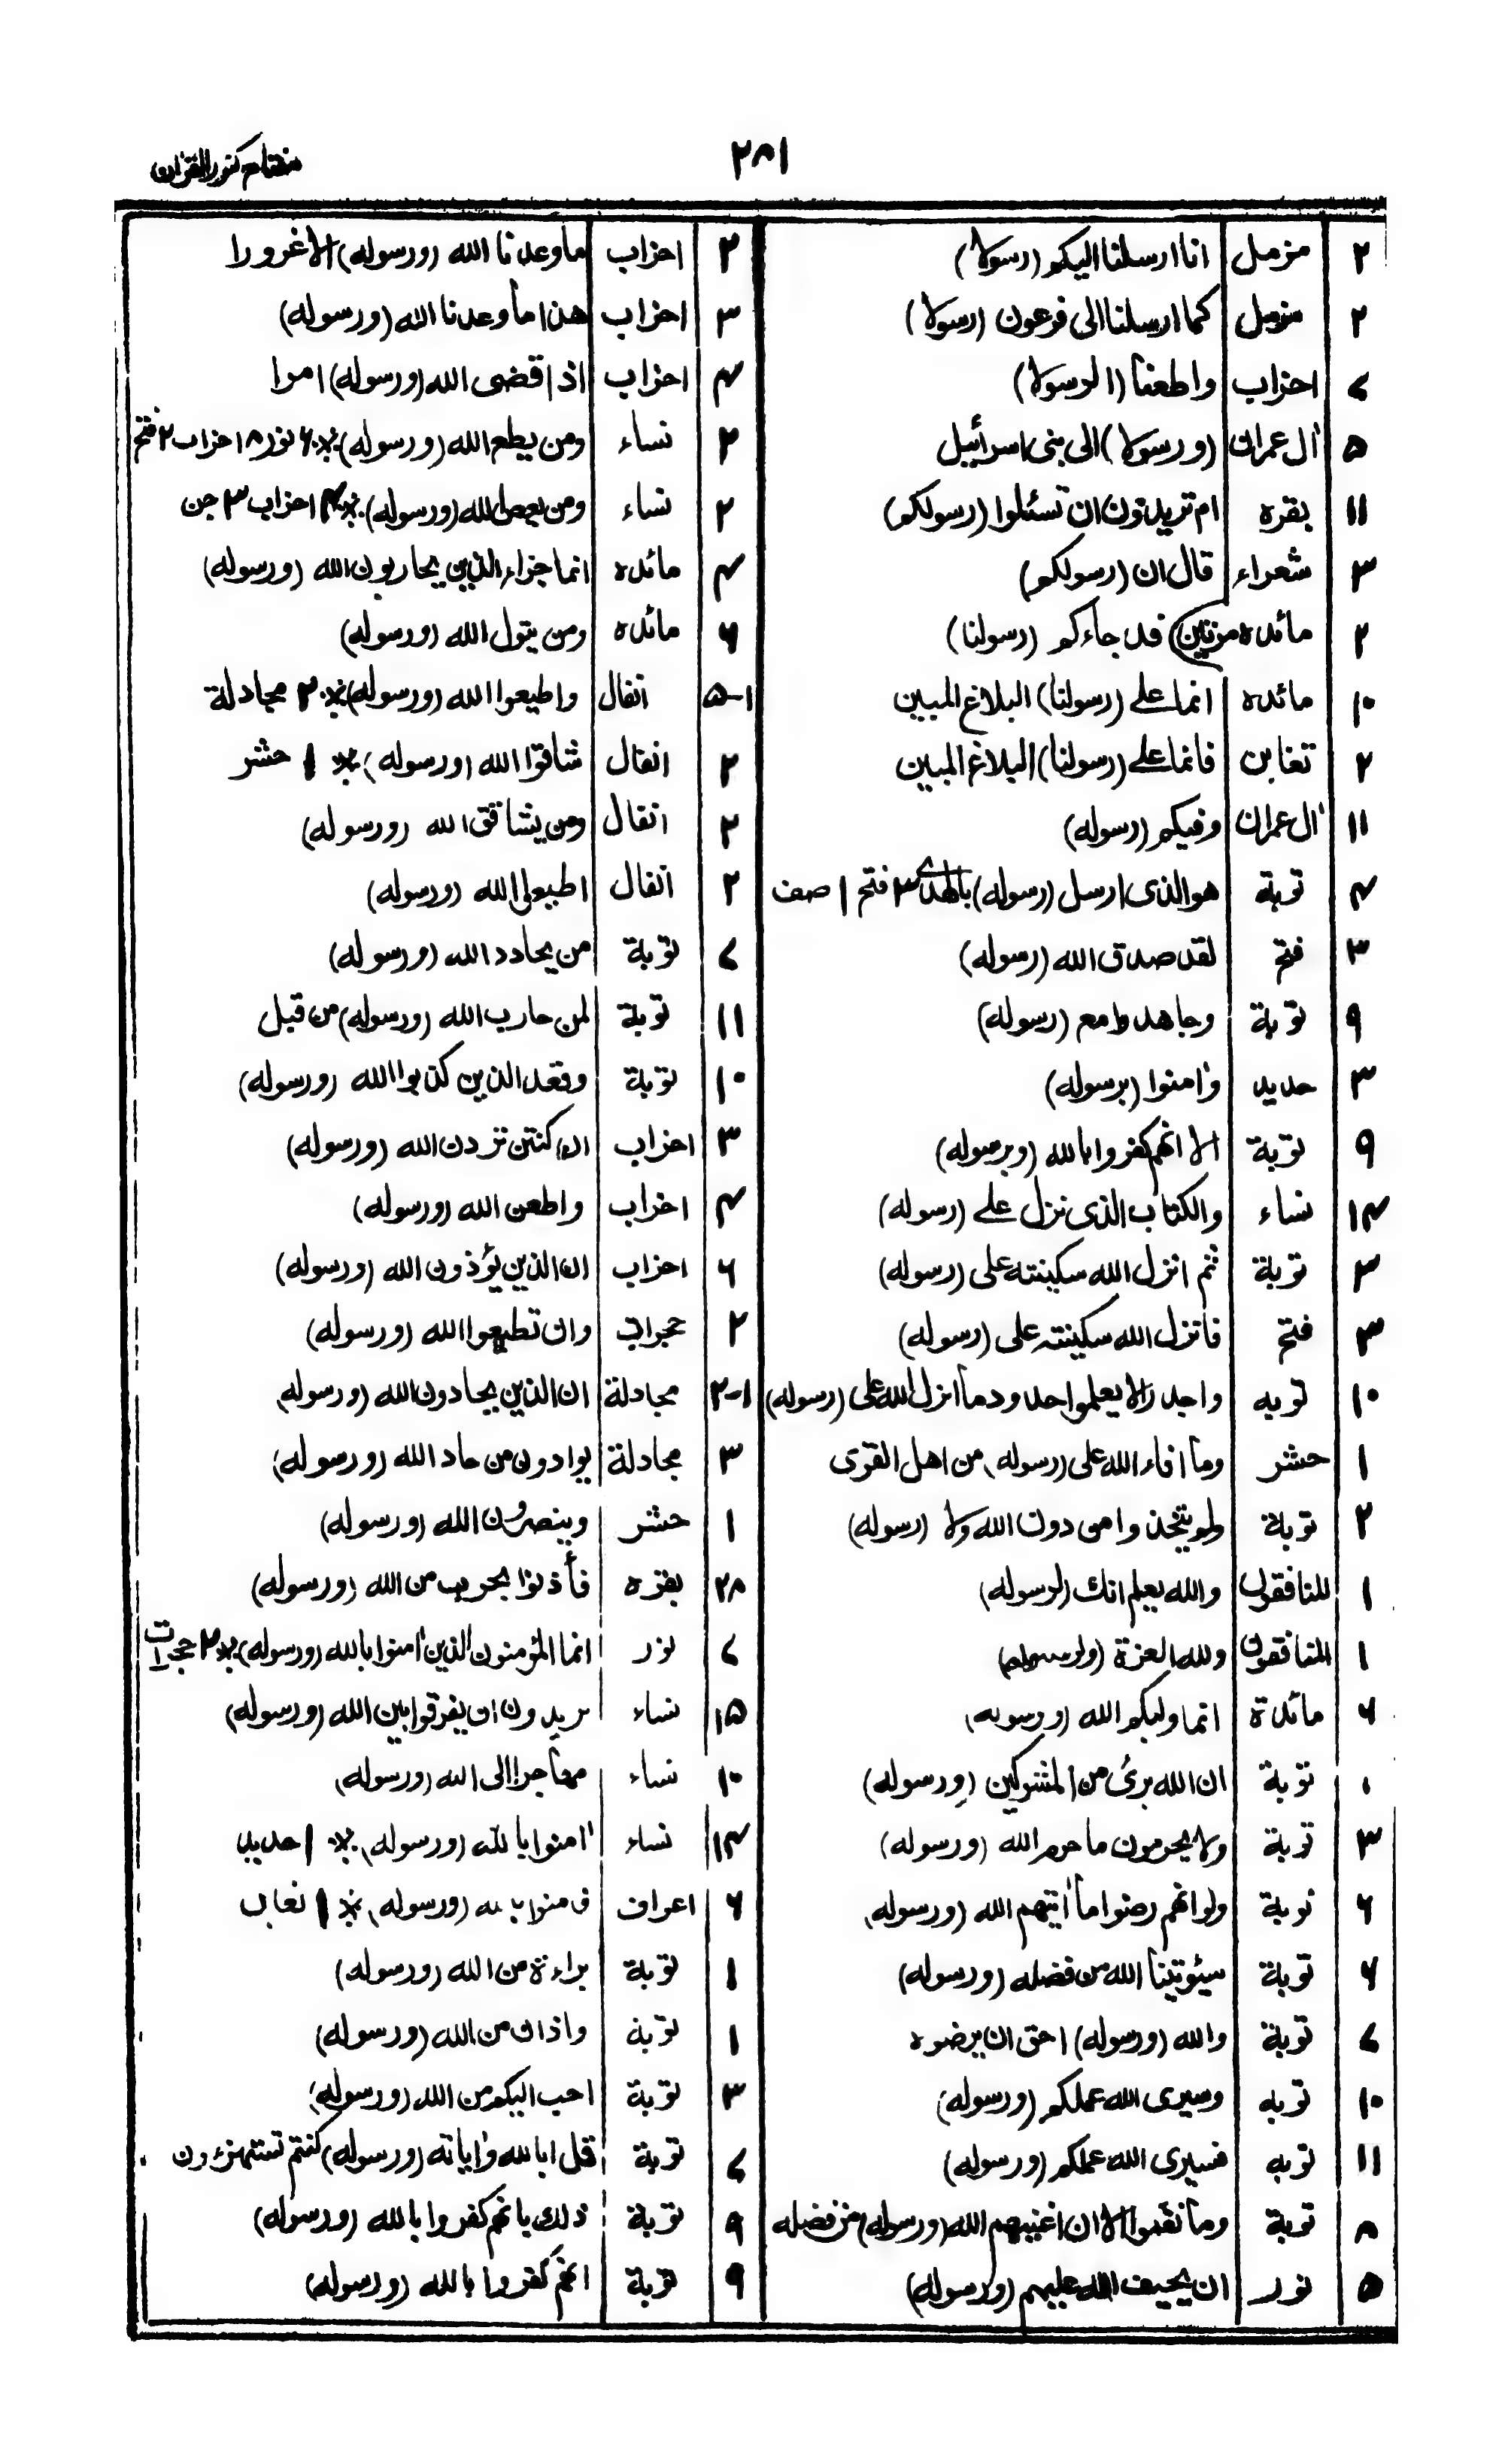 ٢٨١
مفتاح كنوز القرآن
٢ مزمل انا ارسلنا اليكم (رسولا)
٢ مزمل كما ارسلنا الى فرعون (رسولا)
٧ احزاب واطعنا (الرسولا)
٥ اٰل عمران (ورسولا) الى بنى اسرائيل
١١ بقره ام تريدون ان تسئلوا (رسولكم)
٣ شعراء قال ان (رسولكم)
٢ مائده مرتين قد جاءكم (رسولنا)
١٠ مائده انما على (رسولنا) البلاغ المبين
٢ تغابن فانما على (رسولنا) البلاغ المبين
١١ اٰل عمران وفيكم (رسوله)
٤ توبة هو الذى ارسل (رسوله) بالهدى ٣ فتح ١ صف
٣ فتح لقد صدق الله (رسوله)
٩ توبة وجاهدوا مع (رسوله)
٣ حديد واٰمنوا (برسوله)
٩ توبة الا انهم كفروا بالله (وبرسوله)
١٤ نساء والكتاب الذى نزل على (رسوله)
٣ توبة ثم انزل الله سكينته على (رسوله)
٣ فتح فانزل الله سكينته على (رسوله)
١٠ توبه واجدر الا يعلموا حدود ما انزل الله على (رسوله)
١ حشر وما افاء الله على (رسوله) من اهل القرى
٢ توبة ولم يتخذوا من دون الله ولا (رسوله)
١ المنافقون والله يعلم انك (لرسوله)
١ المنافقون ولله العزة (ولرسوله)
٦ مائدة انما وليكم الله (ورسوله)
١ توبة ان الله برئ من المشركين (ورسوله)
٣ توبة ولا يحرمون ما حرم الله (ورسوله)
٦ توبة ولو انهم رضوا ما اٰتيهم الله (ورسوله)
٦ توبة سيؤتينا الله من فضله (ورسوله)
٧ توبة والله (ورسوله) احق ان يرضوه
١٠ توبه وسيرى الله عملكم (ورسوله)
١١ توبه فسيرى الله عملكم (ورسوله)
٨ توبة وما نقموا الا ان اغنيهم الله (ورسوله) من فضله
٥ نور ان يحيف الله عليهم (ورسوله)
٢ احزاب ما وعدنا الله (ورسوله) الا غرورا
٣ احزاب هذا ما وعدنا الله (ورسوله)
٤ احزاب اذا قضى الله (ورسوله) امرا
٢ نساء ومن يطع الله (ورسوله) ٪ ٦ نور ٨ احزاب ٢ فتح
٢ نساء ومن يعص الله (ورسوله) ٪ ٤ احزاب ٣ جن
٤ مائده انما جزاء الذين يحاربون الله (ورسوله)
٦ مائده ومن يتول الله (ورسوله)
١-٥ انفال واطيعوا الله (ورسوله) ٪ ٢ مجادلة
٢ انفال شاقوا الله (ورسوله) ٪ ١ حشر
٢ انفال ومن يشاقق الله (ورسوله)
٢ انفال اطيعوا الله (ورسوله)
٧ توبة من يحادد الله (ورسوله)
١١ توبة لمن حارب الله (ورسوله) من قبل
١٠ توبة وقعد الذين كذبوا الله (ورسوله)
٣ احزاب ان كنتن تردن الله (ورسوله)
٤ احزاب واطعن الله (ورسوله)
٦ احزاب ان الذين يؤذون الله (ورسوله)
٢ حجرات وان تطيعوا الله (ورسوله)
١-٢ مجادلة ان الذين يحادون الله (ورسوله)
٣ مجادلة يوادون من حاد الله (ورسوله)
١ حشر وينصرون الله (ورسوله)
٢٨ بقره فأذنوا بحرب من الله (ورسوله)
٧ نور انما المؤمنون الذين اٰمنوا بالله (ورسوله) ٪ ٢ حجرات
١٥ نساء يريدون ان يفرقوا بين الله (ورسوله)
١٠ نساء مهاجرا الى الله (ورسوله)
١٤ نساء اٰمنوا بالله (ورسوله) ٪ ١ حديد
٦ اعراف فامنوا بالله (ورسوله) ٪ ١ تغابن
١ توبة براءة من الله (ورسوله)
١ توبة واذان من الله (ورسوله)
٣ توبة احب اليكم من الله (ورسوله)
٧ توبة قل ابالله واٰياته (ورسوله) كنتم تستهزءون
٩ توبة ذلك بانهم كفروا بالله (ورسوله)
٩ توبة انهم كفروا بالله (ورسوله)